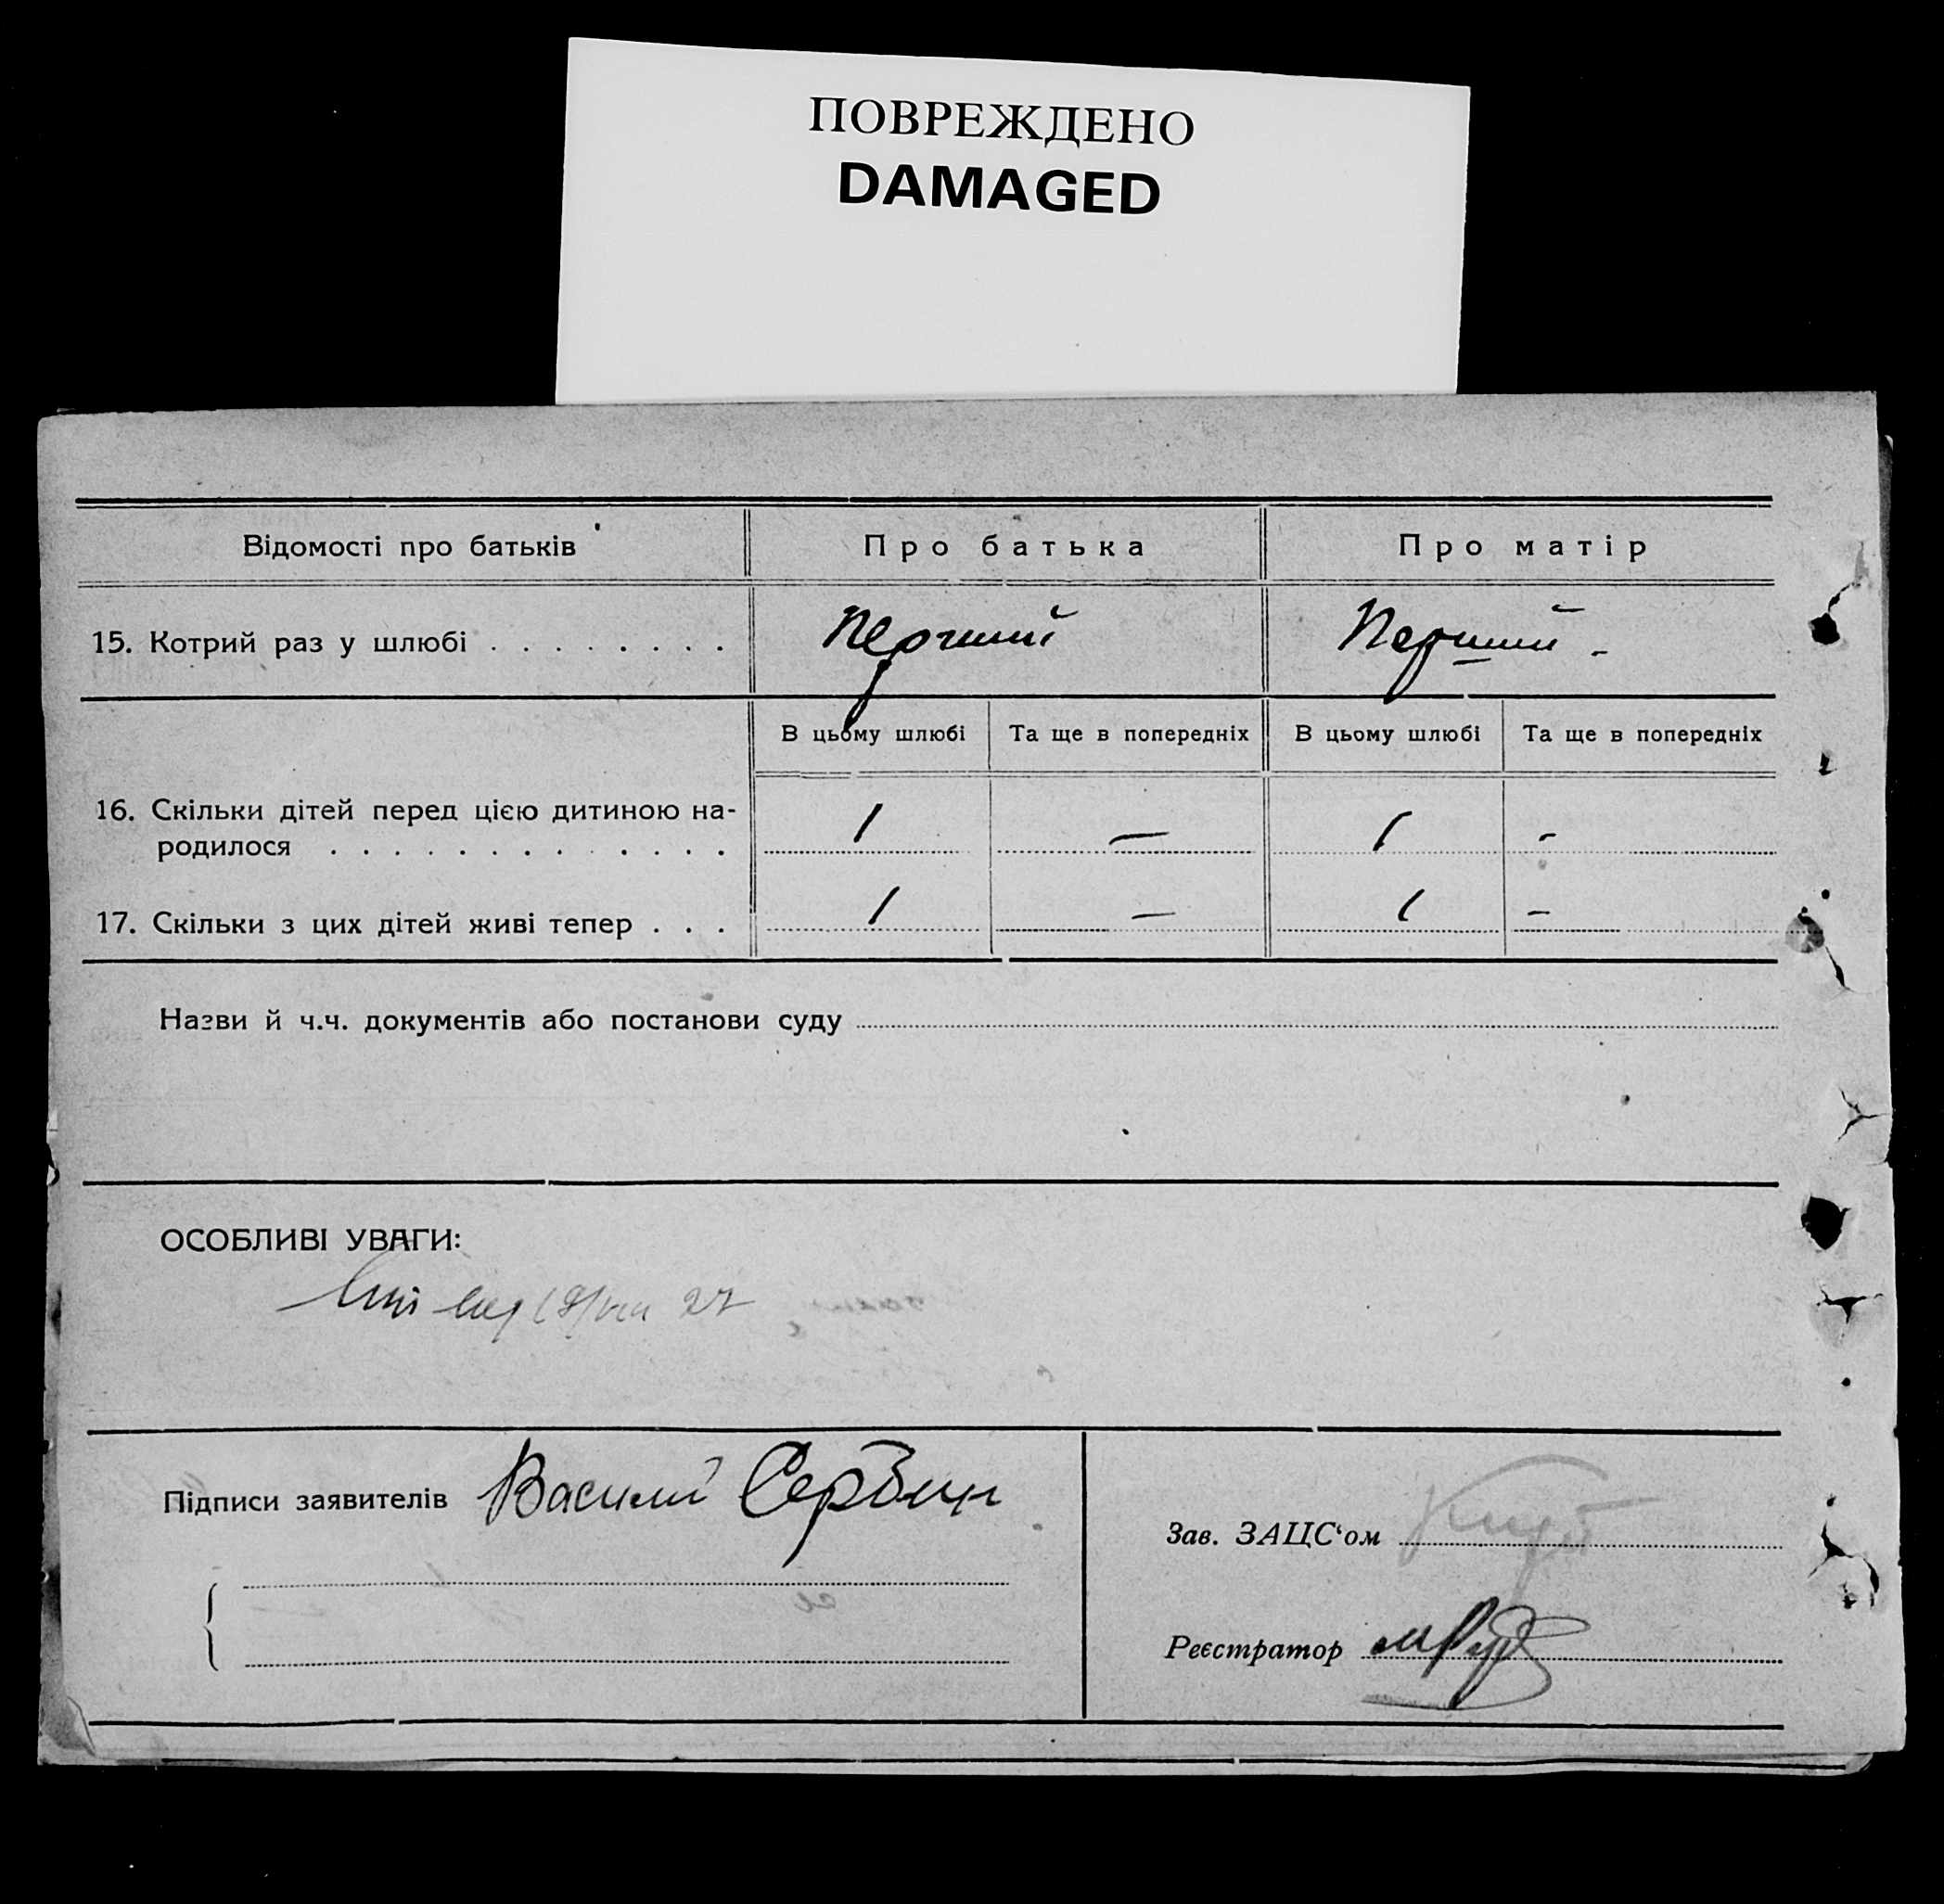 ПОВРЕЖДЕНО
DAMAGED
Відомості про батьків
Про батька
Про матір
15. Котрий раз у шлюбі . . . . . . . .
Перший
Перший -
В цьому шлюбі
Та ще в попередніх
В цьому шлюбі
Та ще в попередніх
16. Скільки дітей перед цією дитиною на-
родилося . . . . . . . . . . . . .
1
—
1
-
17. Скільки з цих дітей живі тепер . . .
1
—
1
-
Назви й ч.ч. документів або постанови суду
ОСОБЛИВІ УВАГИ:
27
Підписи заявителів Василий Сербин
Зав. ЗАЦС‘ом
Реєстратор